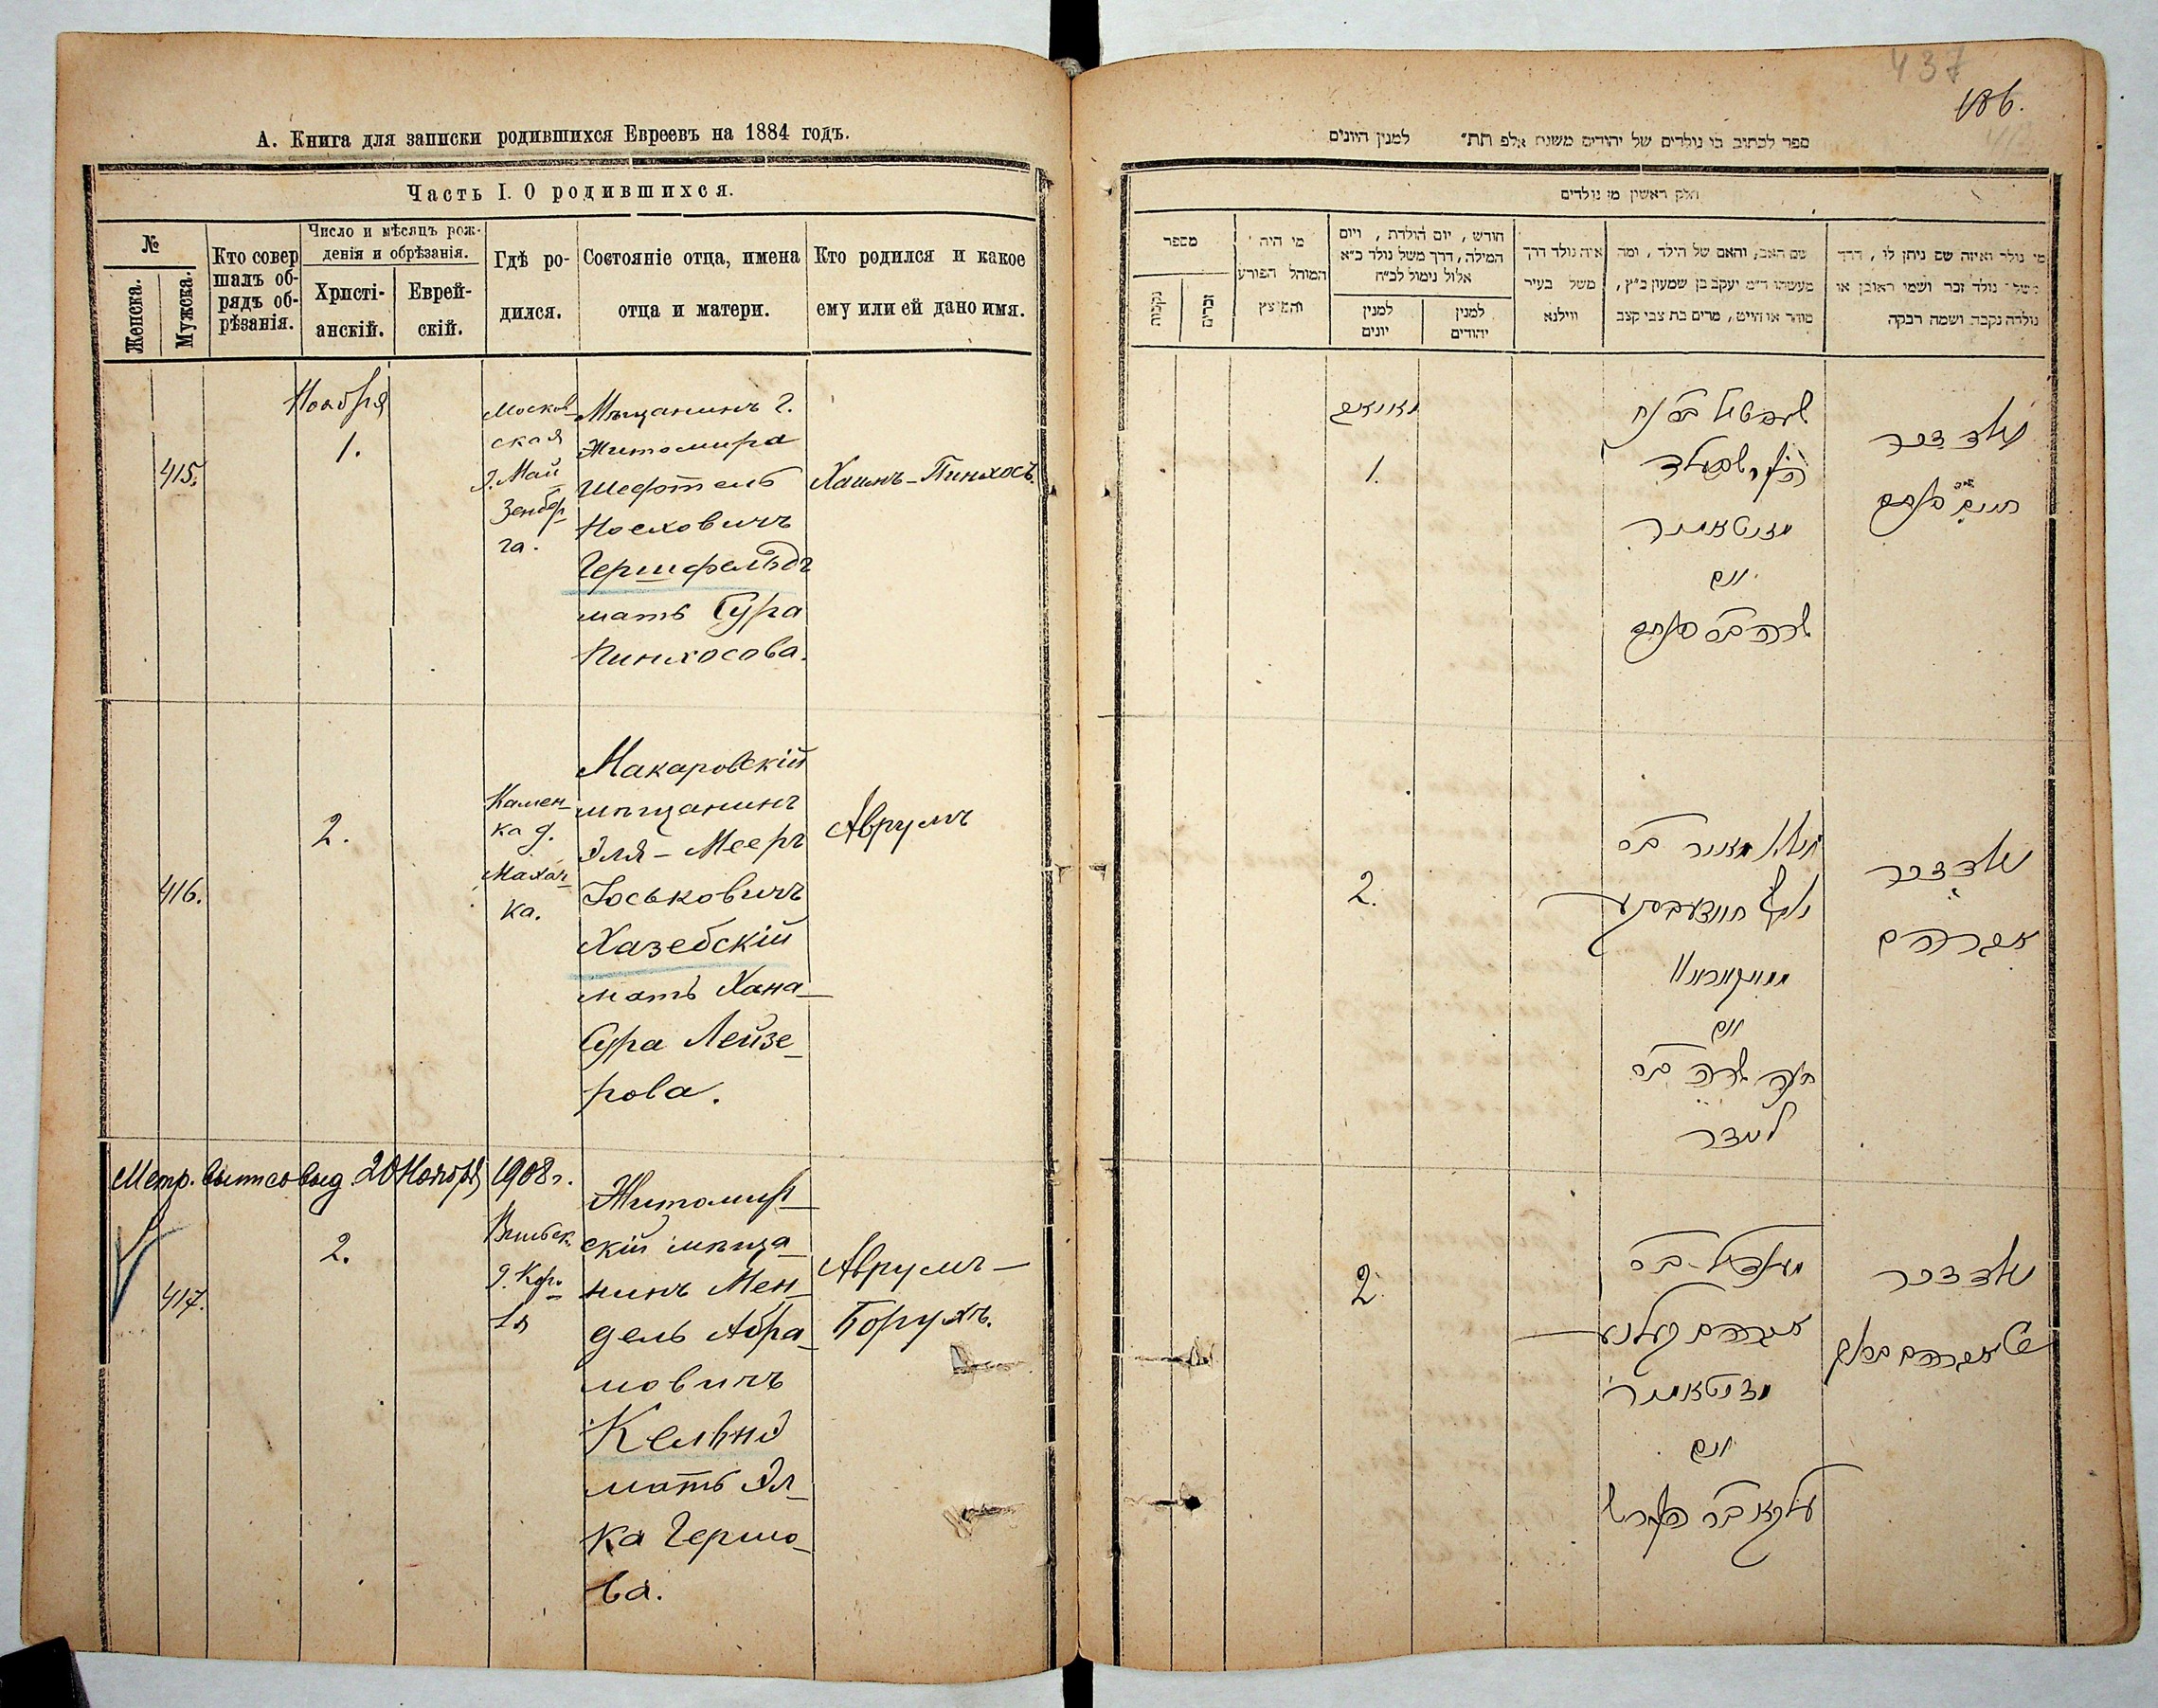 А. Книга для записки родившихся Евреевъ на 1884 годъ.
Часть I. О родившихся.
№
Женска.
Мужска.
Кто совер
шалъ об-
рядъ об-
рѣзанія.
Число и мѣсяцъ рож-
денія и обрѣзанія.
Христі-
анскій.
Еврей-
скій.
Гдѣ ро-
дился.
Состояніе отца, имена
отца и матери.
Кто родился и какое
ему или ей дано имя.
415.
Ноября
1.
Москов
ская
д. Май
зенбер
га.
Мѣщанинъ г.
Житомира
Шефтель
Носховичъ
Гершфельдъ
мать Сура
Пинхосова.
Хаимъ-Пинхосъ.
416.
2.
Камен-
ка д.
ка.
Макаровскій
мѣщанинъ
Эля-Мееръ
Іоськовичъ
Хазебскій
мать Хана-
Сура Лейзе-
рова.
Аврумъ
Метр. вып. выд. 20 Ноября 1908 г.
417.
2.
Житомир-
скій мѣща-
нинъ Мен-
дель Абра-
мовичъ
Кельнэ
мать Эл-
ка Гершо-
ва.
Аврумъ-
Борухъ.
437
186.
ספר לכתוב בו נולדים של יהודים משנת אלפ תת״ למנין היונים
חלק ראשון מן נולדים
מספר
נקבות
זכרים
מי היה
המוהל הפורע
והמוצץ
חודש, יום הולדת, ויום
המילה, דרך משל נולד כ״א
אלול נימול לכ״ח
למנין
יונים
למנין
יהודים
איה נולד דרך
משל בעיר
ווילנא
שם האב, והאם של הילד, ומה
מעשהו ד״מ יעקב בן שמעון כ״ץ,
סוחר או חייט, מרים בת צבי קצב
מי נולד ואיזה שם ניתן לו, דרך
משל נולד זכר ושמו ראובן או
נולדה נקבה ושמה רבקה
1.
זיטאמיר
ואם
שרה בת פנחס
נולד זכר
חיים פנחס
2.
ואם
חנה שרה בת
ליזער
נולד זכר
אברהם
2.
מענדיל בר
אברהם קעלנע
זיטאמיר
ואם
עלקא בת הערש
נולד זכר
אברהם ברוך